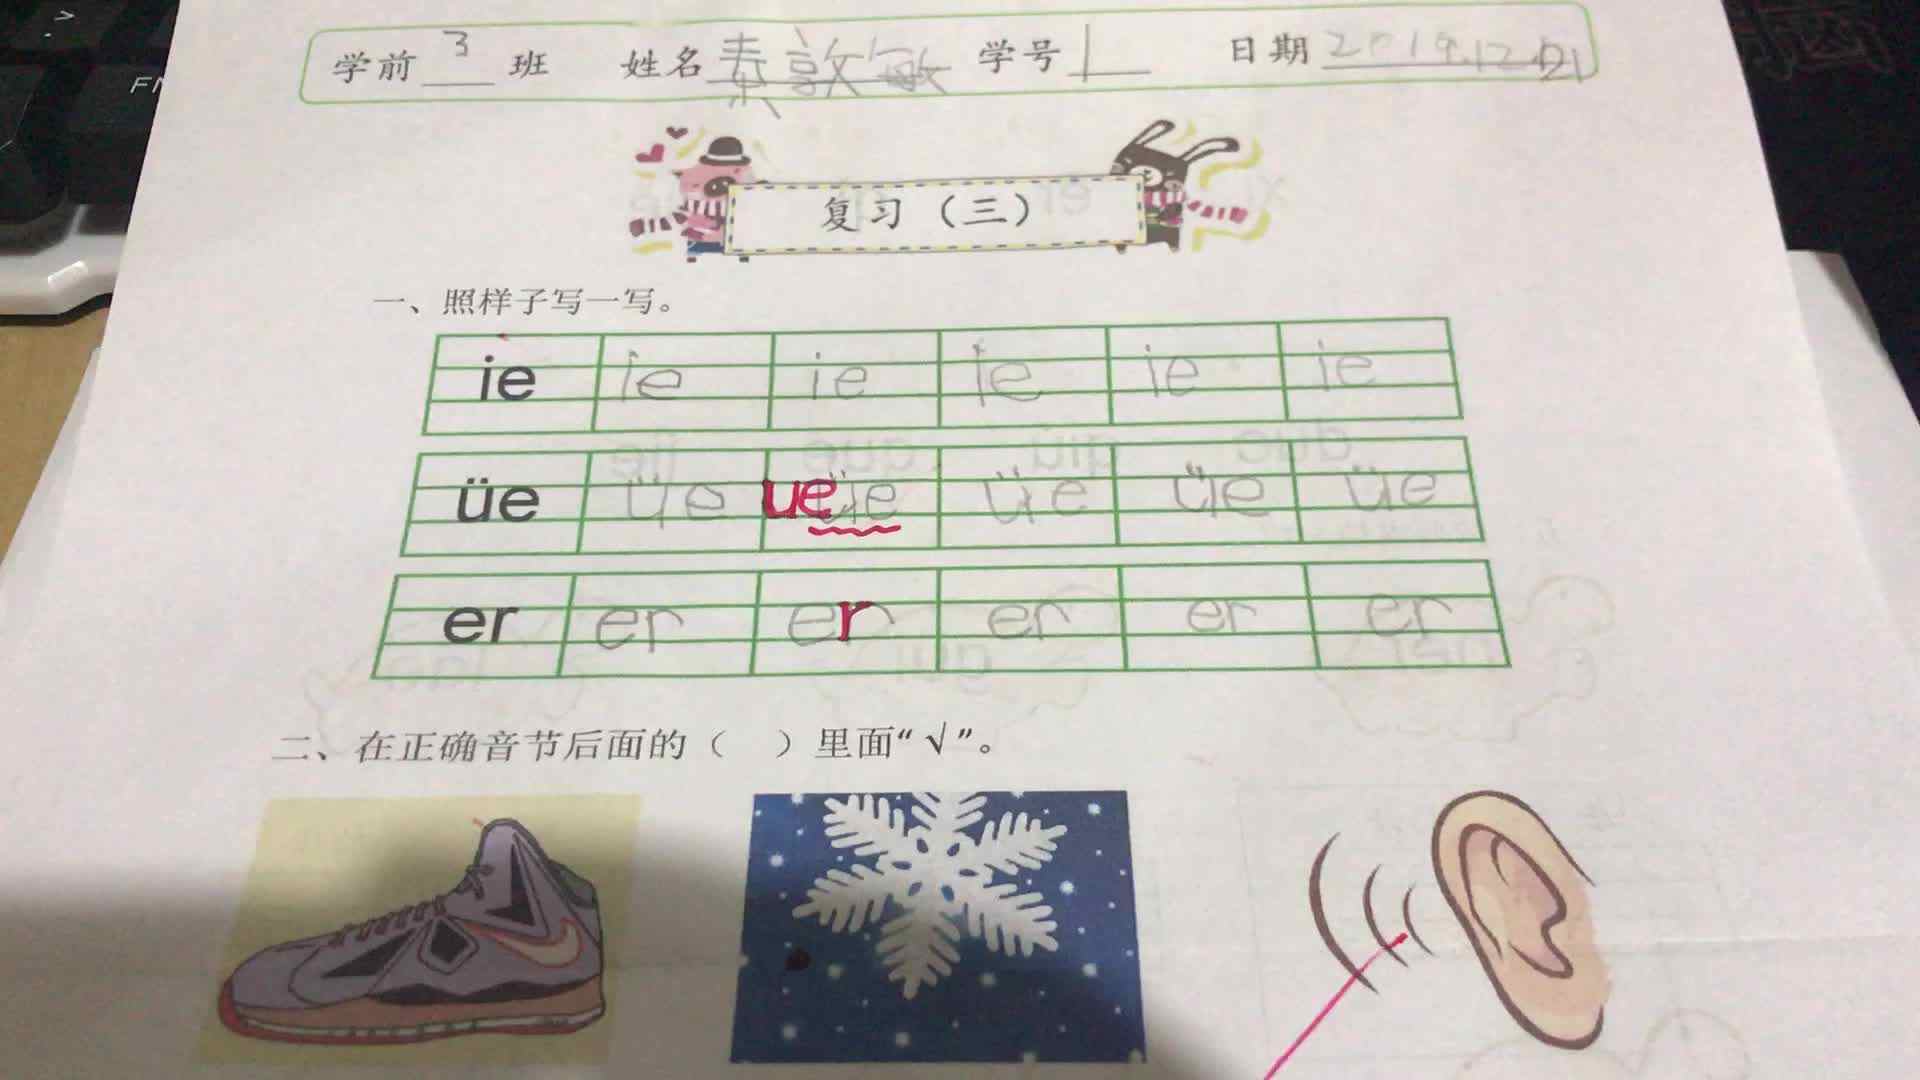 学前 3 班 姓名 秦敦敏 学号 1 日期 2019.12.21
复习（三）
一、照样子写一写。
ie ie ie ie ie ie
üe üe ue üe üe üe üe
er er er er er er
二、在正确音节后面的（ ）里面“√”。